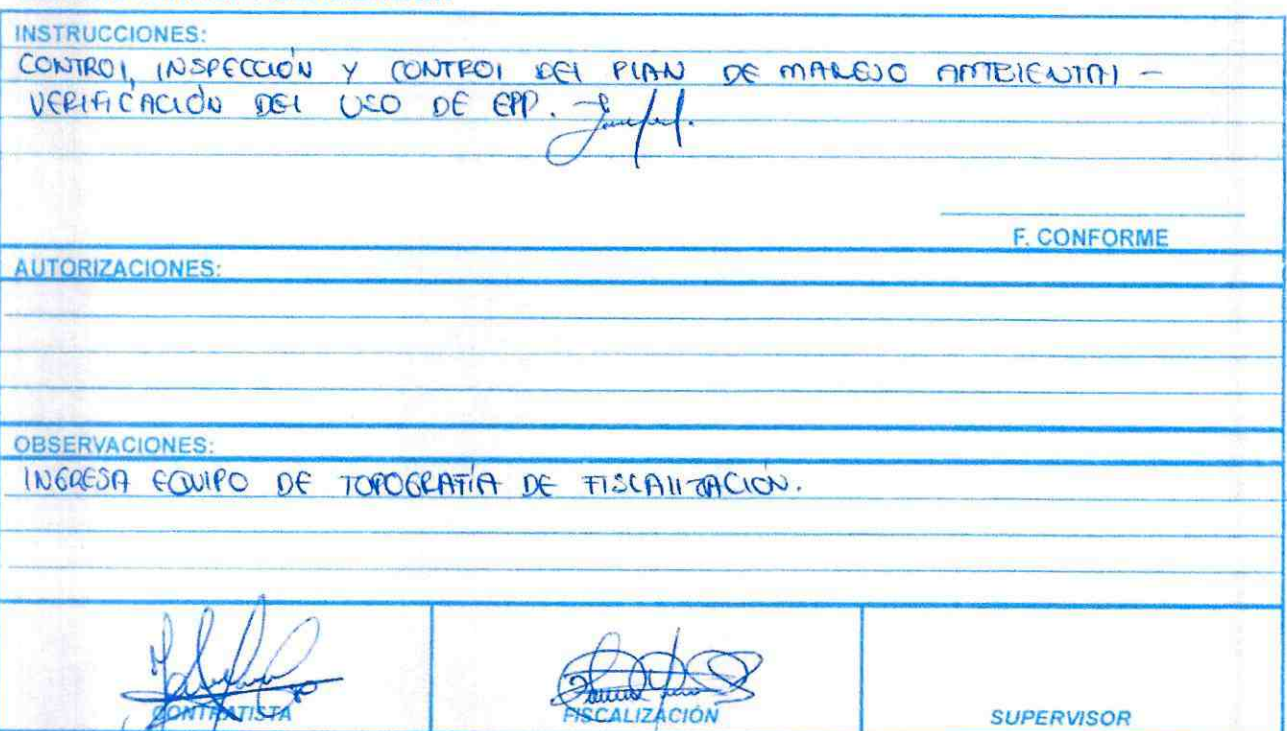 INSTRUCCIONES:
CONTROL, INSPECCIÓN Y CONTROL DEL PLAN DE MANEJO AMBIENTAL -
VERIFICACIÓN DEL USO DE EPP.
F. CONFORME
AUTORIZACIONES:
OBSERVACIONES:
INGRESA EQUIPO DE TOPOGRAFÍA DE FISCALIZACIÓN.
CONTRATISTA FISCALIZACIÓN SUPERVISOR